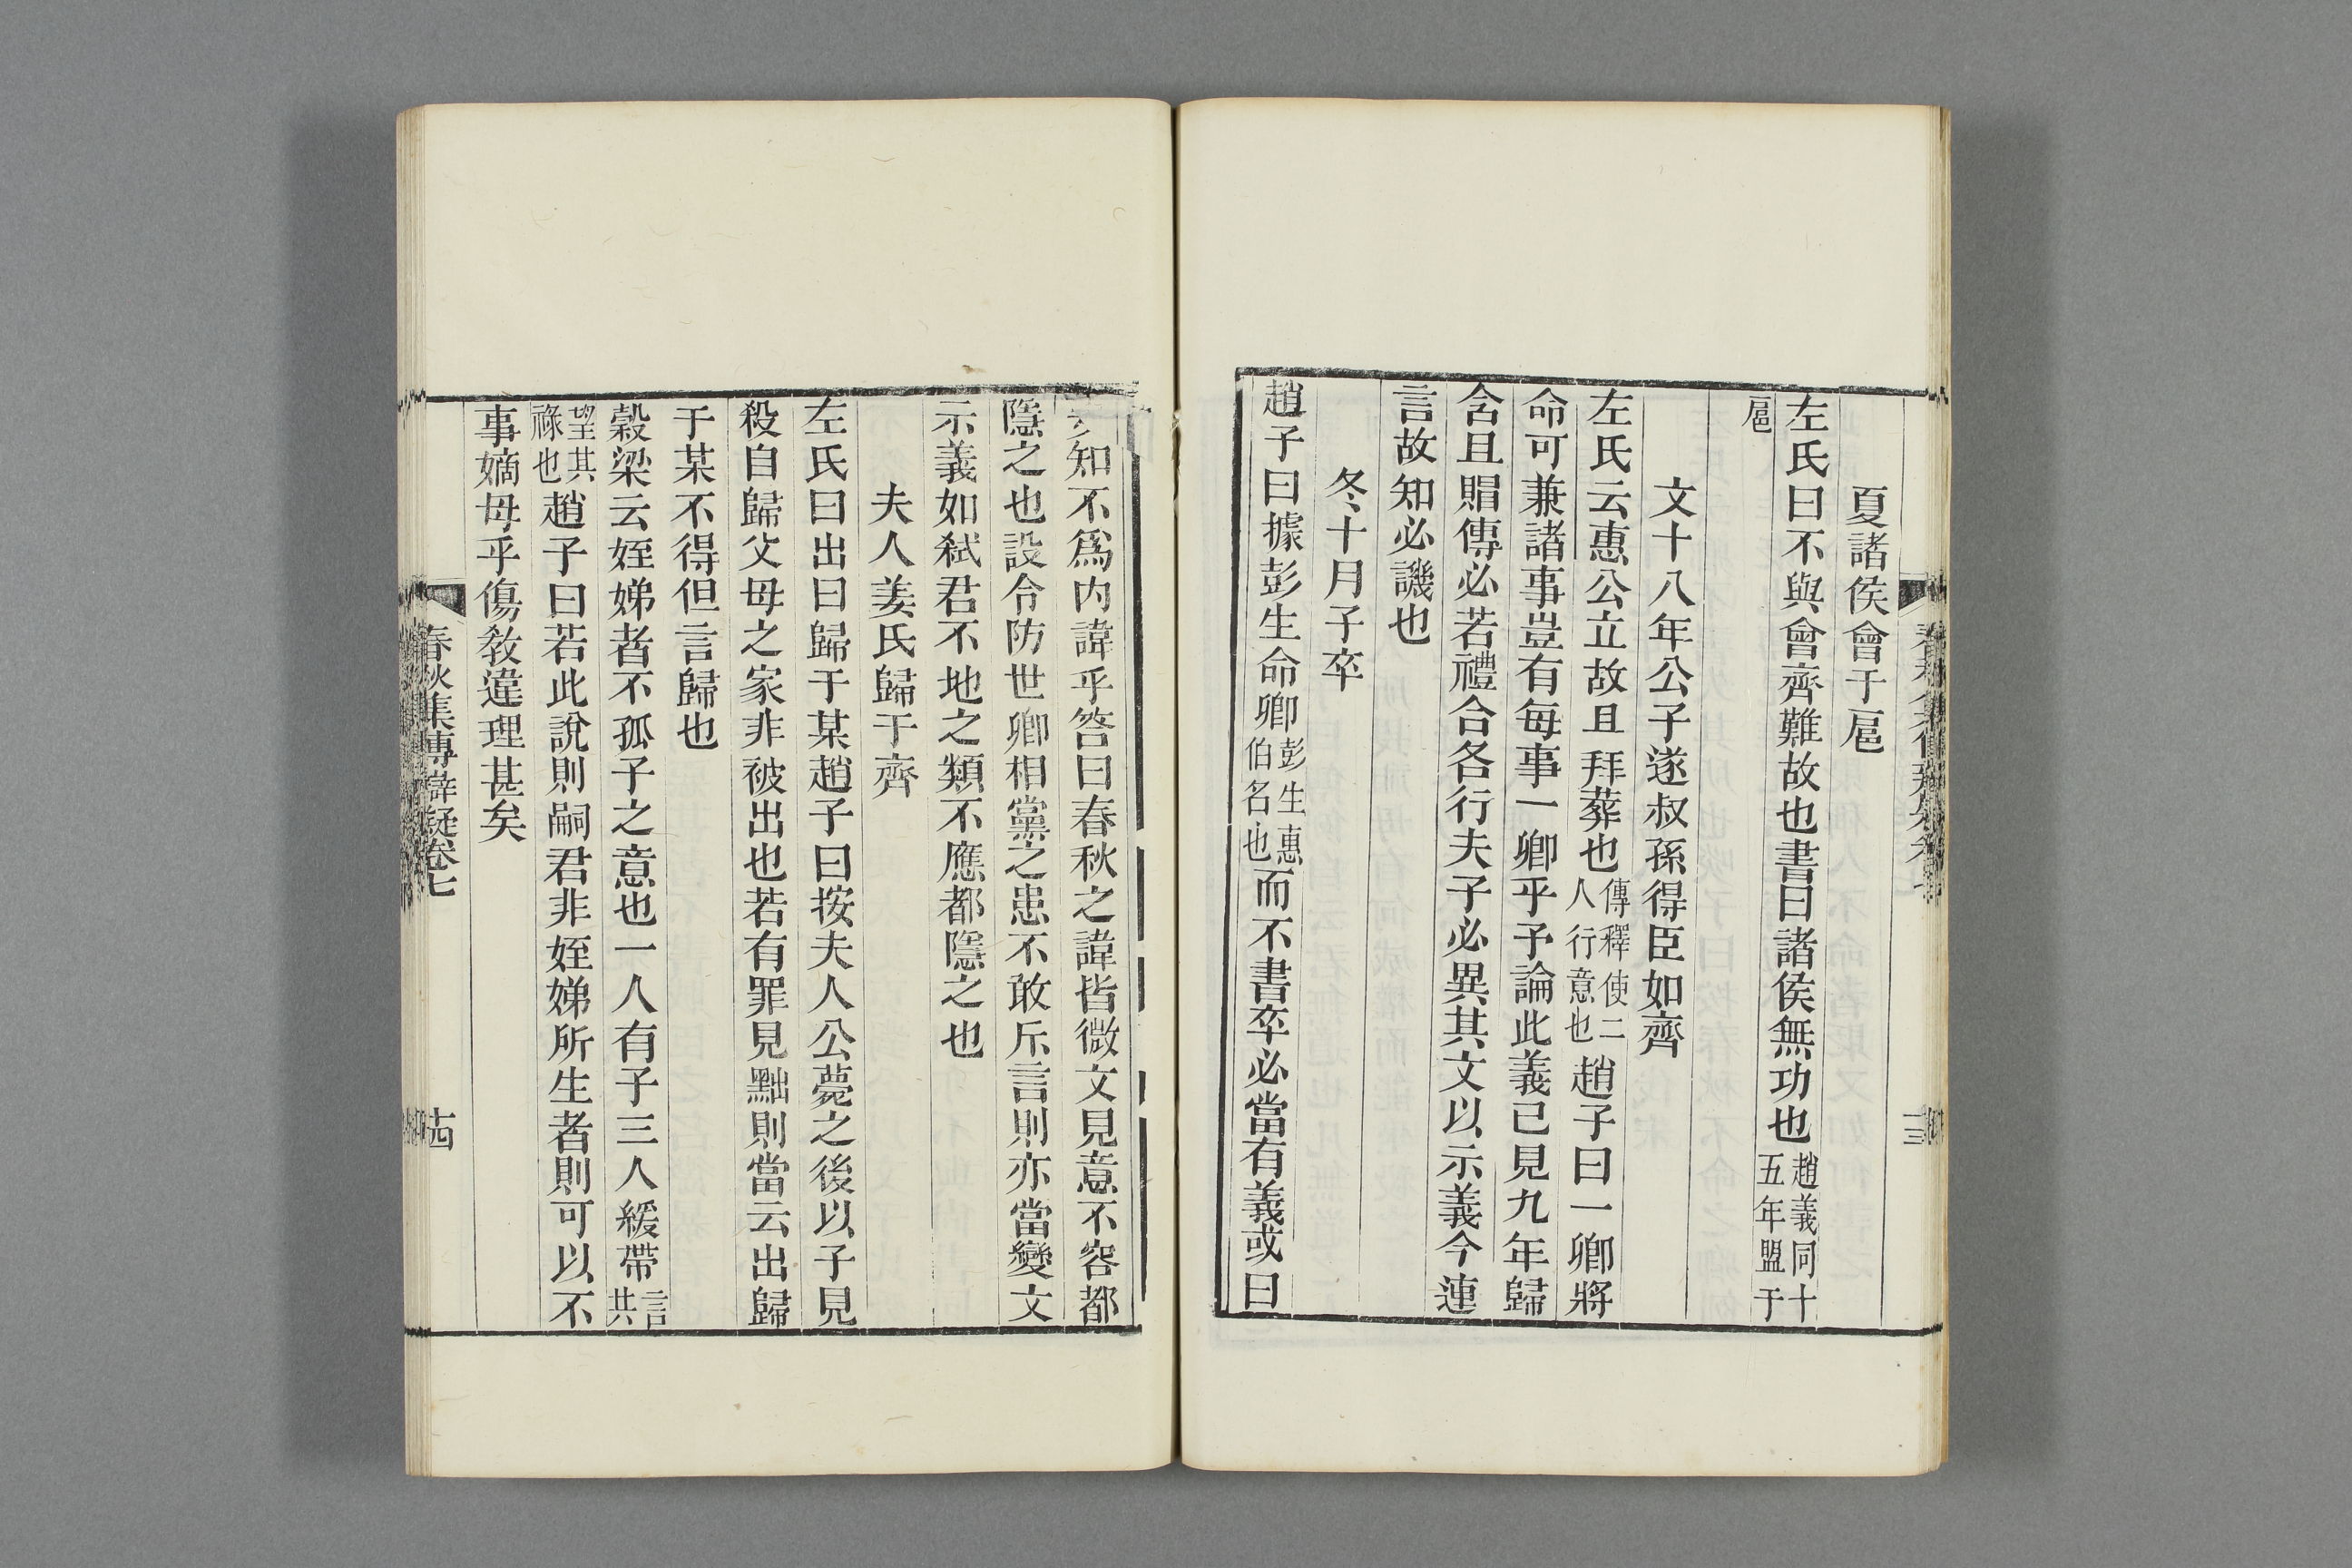 夏諸侯會于扈
左氏曰不與會齊難故也書曰諸侯無功也趙義同十五年盟于
扈
文十八年公子遂叔孫得臣如齊
左氏云惠公立故且拜葬也傳釋使二人行意也趙子曰一卿將
命可兼諸事豈有每事一卿乎予論此義已見九年歸
含且賵傳必若禮合各行夫子必異其文以示義今連
言故知必譏也
冬十月子卒
趙子曰據彭生命卿彭生惠伯名也而不書卒必當有義或曰
知不爲内諱乎答曰春秋之諱皆微文見意不容都
隱之也設令防世卿相黨之患不敢斥言則亦當變文
示義如弒君不地之類不應都隱之也
夫人姜氏歸于齊
左氏曰出曰歸于某趙子曰按夫人公薨之後以子見
殺自歸父母之家非被出也若有罪見黜則當云出歸
于某不得但言歸也
穀梁云姪娣者不孤子之意也一人有子三人緩帶言共
望其祿也趙子曰若此說則嗣君非姪娣所生者則可以不
事嫡母乎傷敎違理甚矣
春秋集傳辯疑卷七
十四